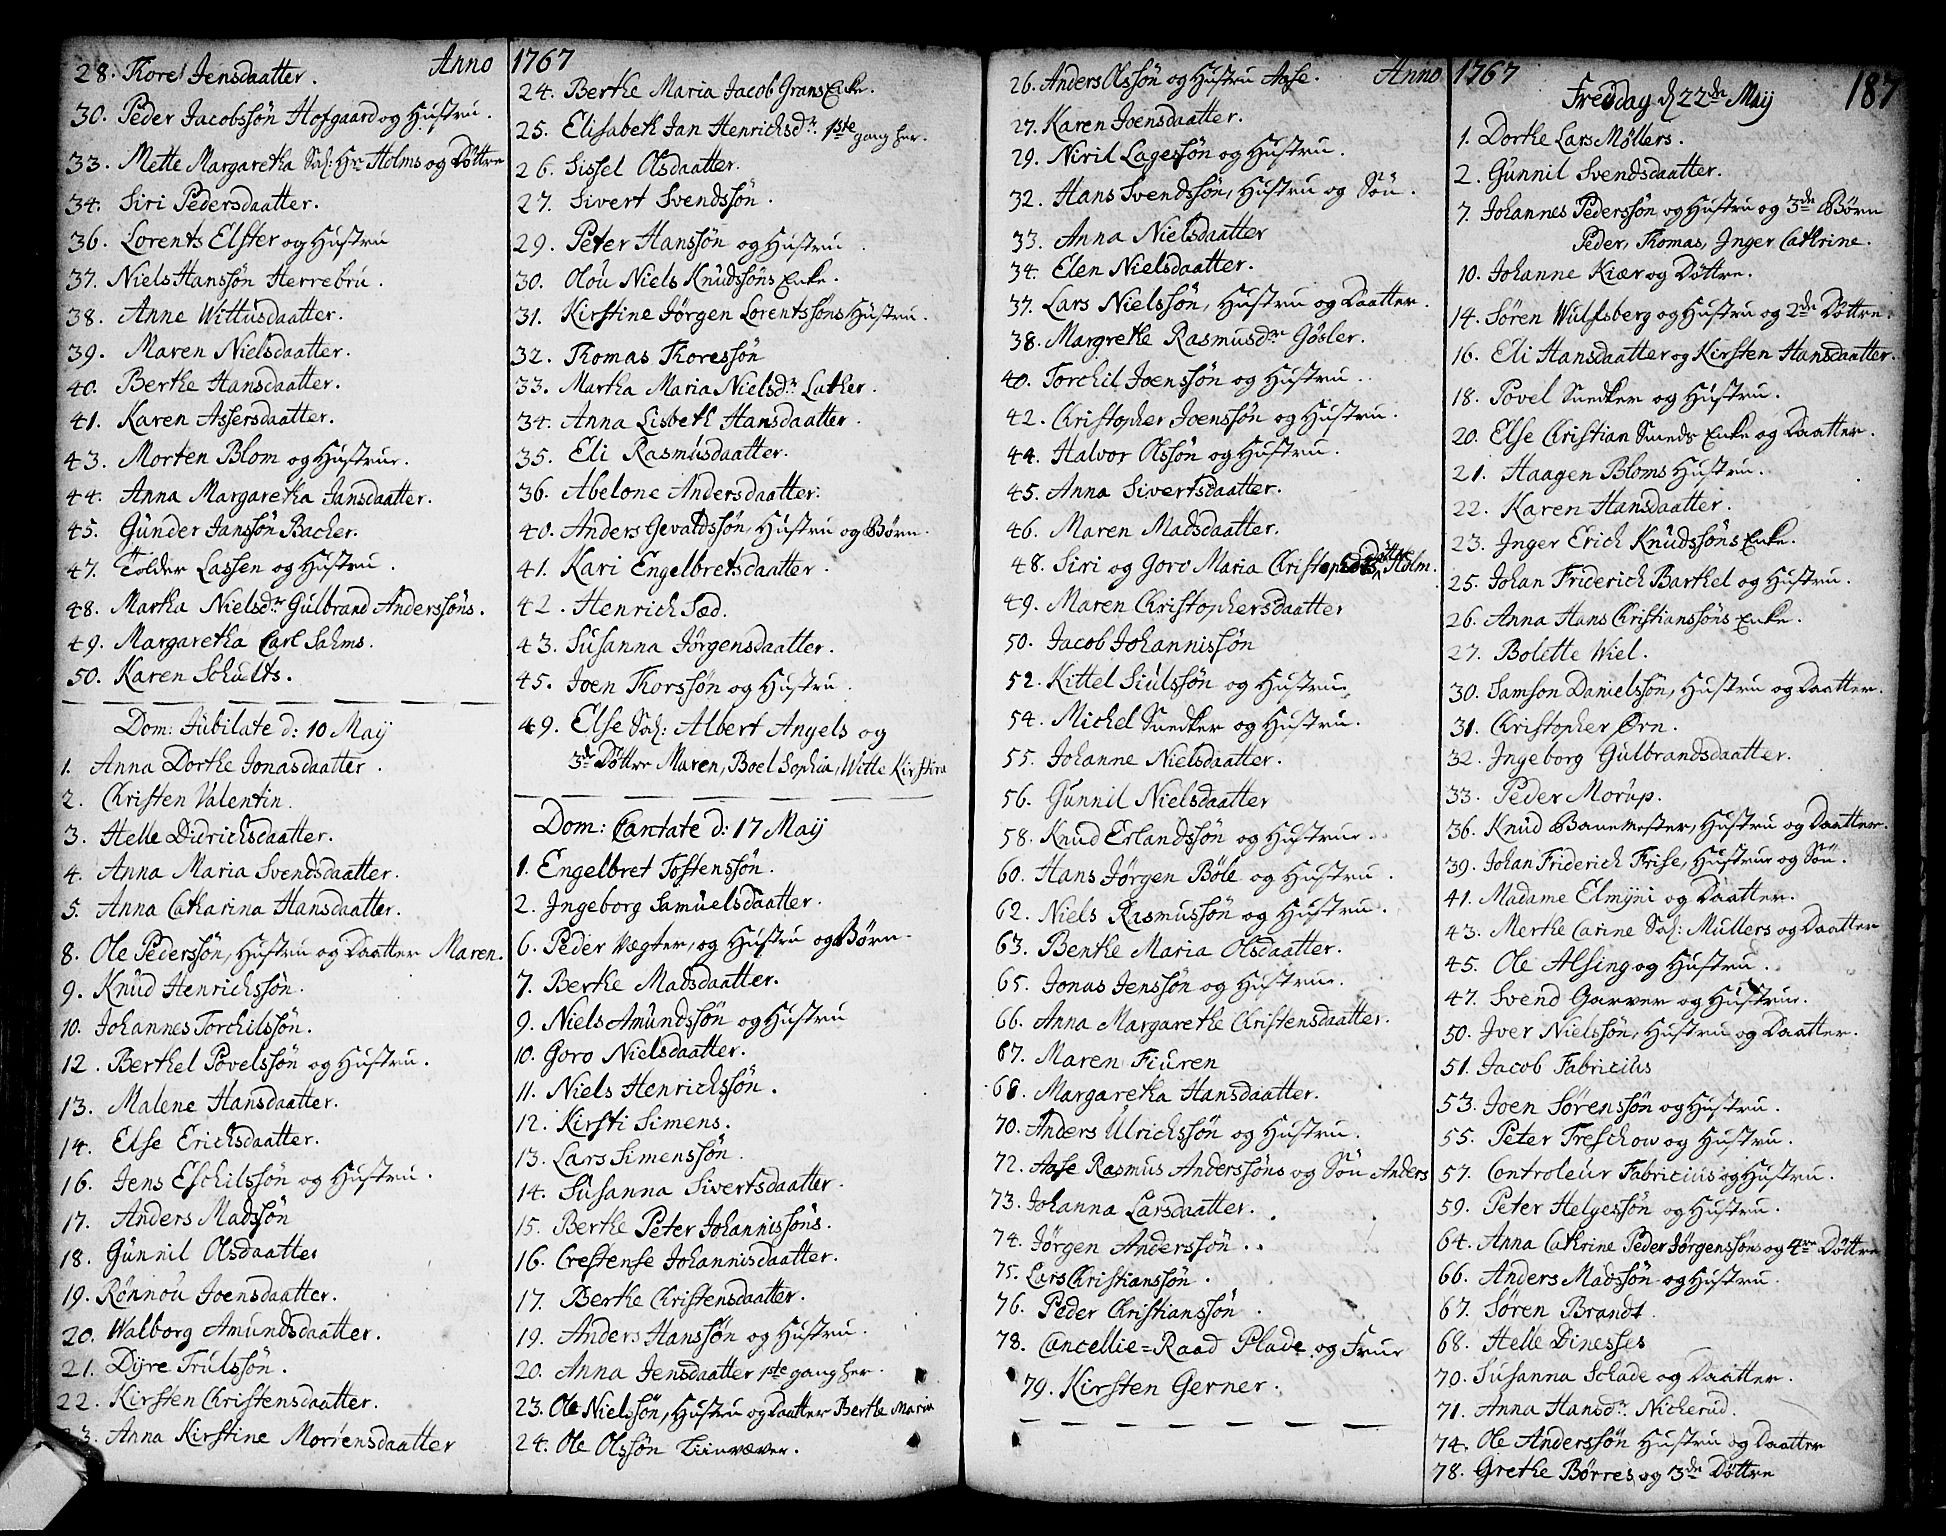 Anno 1767
28. Thore Jensdaatter.
30. Peder Jacobssön Hofgaard og Hustru.
33. Mette Margaretha Sal: Hr Holms og Döttre
34. Siri Pedersdaatter.
36. Lorents Elster og Hustru
37. Niels Hanssön Herrebru.
38. Anne Wittusdaatter.
39. Maren Nielsdaatter.
40. Berthe Hansdaatter.
41. Karen Assersdaatter.
43. Morten Blom og Hustrue.
44. Anna Margaretha Jansdaatter.
45. Gunder Janssön Bacher.
47. Tolder Lassen og Hustru.
48. Martha Nielsdr Gulbrand Anderssöns.
49. Margaretha Carl Sahms.
50. Karen Schults.
Dom: Jubilate d: 10 Maÿ
1. Anna Dorthe Jonasdaatter.
2. Christen Valentin.
3. Helle Didrichsdaatter.
4. Anna Maria Svendsdaatter.
5. Anna Catharina Hansdaatter.
8. Ole Pederssön, Hustru og Daatter Maren.
9. Knud Henrichssön.
10. Johannes Torchilssön.
12. Berthel Povelssön og Hustru.
13. Malene Hansdaatter.
14. Else Erichsdaatter.
16. Jens Eschilssön og Hustru.
17. Anders Madssön
18. Gunnil Olsdaatter
19. Rönnou Joensdaatter.
20. Walborg Amundsdaatter.
21. Dÿre Trulssön.
22. Kirsten Christensdaatter.
23. Anna Kirstine Morrensdaatter
24. Berthe Maria Jacob Grans Enke.
25. Elisabeth Jan Henrichsdr. 1ste gang her.
26. Sissel Olsdaatter.
27. Sivert Svendssön.
29. Peter Hanssön og Hustru.
30. Olou Niels Knudssöns Enke.
31. Kirstine Jörgen Lorentssöns Hustru.
32. Thomas Thoressön
33. Martha Maria Nielsdr Luther.
34. Anna Lisbeth Hansdaatter.
35. Eli Rasmusdaatter.
36. Abelone Andersdaatter.
40. Anders Gevaldssön, Hustru og Börn.
41. Kari Engelbretsdaatter.
42. Henrich Sæd.
43. Susanna Jörgensdaatter.
45. Joen Thorssön og Hustru.
49. Else Sal: Albert Angels og
3de Döttre Maren, Boel Sophia, Witte Kirstina
Dom: Cantate d: 17 Maÿ
1. Engelbret Tostenssön.
2. Ingeborg Samuelsdaatter.
6. Peder Vægter, og Hustru og Börn.
7. Berthe Madsdaatter.
9. Niels Amundssön og Hustru
10. Goro Nielsdaatter.
11. Niels Henrichssön.
12. Kirsti Simens.
13. Lars Simenssön.
14. Susanna Sivertsdaatter.
15. Berthe Peter Johannissöns.
16. Crestense Johannisdaatter.
17. Berthe Christensdaatter.
19. Anders Hanssön og Hustru.
20. Anna Jensdaatter 1ste gang her.
23. Ole Nielssön, Hustru og Daatter Berthe Maria
24. Ole Olssön Liinvæver.
Anno 1767
187
26. Anders Olssön og Hustru Aase.
27. Karen Joensdaatter.
29. Niril Lagessön og Hustru.
32. Hans Svendssön, Hustru og Sön.
33. Anna Nielsdaatter
34. Elen Nielsdaatter.
37. Lars Nielssön, Hustru og Daatter.
38. Margrethe Rasmusdr Gösler.
40. Torchil Joenssön og Hustru.
42. Christopher Joenssön og Hustru.
44. Halvor Olssön og Hustru.
45. Anna Sivertsdaatter.
46. Maren Madsdaatter.
48. Siri og Goro Maria Christophers Döttre Holm.
49. Maren Christophersdaatter
50. Jacob Johannissön
52. Kittel Siulssön og Hustru,
54. Michel Snedker og Hustru.
55. Johanne Nielsdaatter.
56. Gunnil Nielsdaatter
58. Knud Erlandssön og Hustrue.
60. Hans Jörgen Böle og Hustru.
62. Niels Rasmussön og Hustru.
63. Benthe Maria Olsdaatter.
65. Jonas Jenssön og Hustrue.
66. Anna Margarethe Christensdaatter.
67. Maren Fiuren
68. Margaretha Hansdaatter.
70. Anders Ulrichssön og Hustru.
72. Aase Rasmus Anderssöns og Sön Anders
73. Johanna Larsdaatter.
74. Jörgen Anderssön.
75. Lars Christianssön.
76. Peder Christianssön.
78. Cancellie=Raad Plade og Frue
79. Kirsten Gerner.
Freÿdag d 22de Maÿ
1. Dorthe Lars Möllers.
2. Gunnil Svendsdaatter.
7. Johannes Pederssön og Hustru og 3de Börn
Peder, Thomas, Inger Cathrine.
10. Johanne Kiær og Döttre.
14. Sören Wulfsberg og Hustru og 2de Döttre.
16. Eli Hansdaatter og Kirsten Hansdaatter.
18. Povel Snedker og Hustru.
20. Else Christian Smeds Enke og Daatter.
21. Haagen Bloms Hustru.
22. Karen Hansdaatter.
23. Inger Erich Knudssöns Enke.
25. Johan Friderich Barthel og Hustru.
26. Anna Hans Christianssöns Enke.
27. Bolette Wiel.
30. Samson Danielssön, Hustru og Daatter.
31. Christopher Örn.
32. Ingeborg Gulbrandsdaatter.
33. Peder Morup.
36. Knud Banemester, Hustru og Daatter.
39. Johan Friderich Frise, Hustrue og Sön.
41. Madame Elmÿni og Daatter.
43. Merthe Carine Sal: Mullers og Daatter
45. Ole Alsing og Hustru.
47. Svend Garver og Hustrue.
50. Iver Nielssön, Hustru og Daatter.
51. Jacob Fabricius
53. Joen Sörenssön og Hustru.
55. Peter Treschow og Hustru.
57. Controleur Fabricius og Hustru.
59. Peter Helgessön og Hustru.
64. Anna Cathrine Peder Jörgenssöns og 4re Döttre
66. Anders Madssön og Hustru.
67. Sören Brandt
68. Helle Dinesses
70. Susanna Schade og Daatter.
71. Anna Hansdr. Nickerud.
74. Ole Anderssön Hustru og Daatter
78. Grethe Börres og 3de Döttre